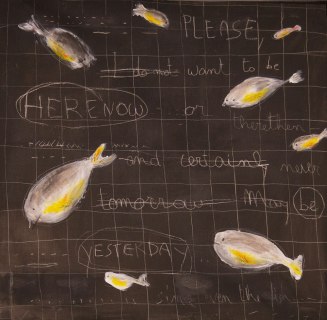 PLEASE,
do not want to be
HERENOW or
therethen
and certainly never
tomorrow May be
YESTERDAY